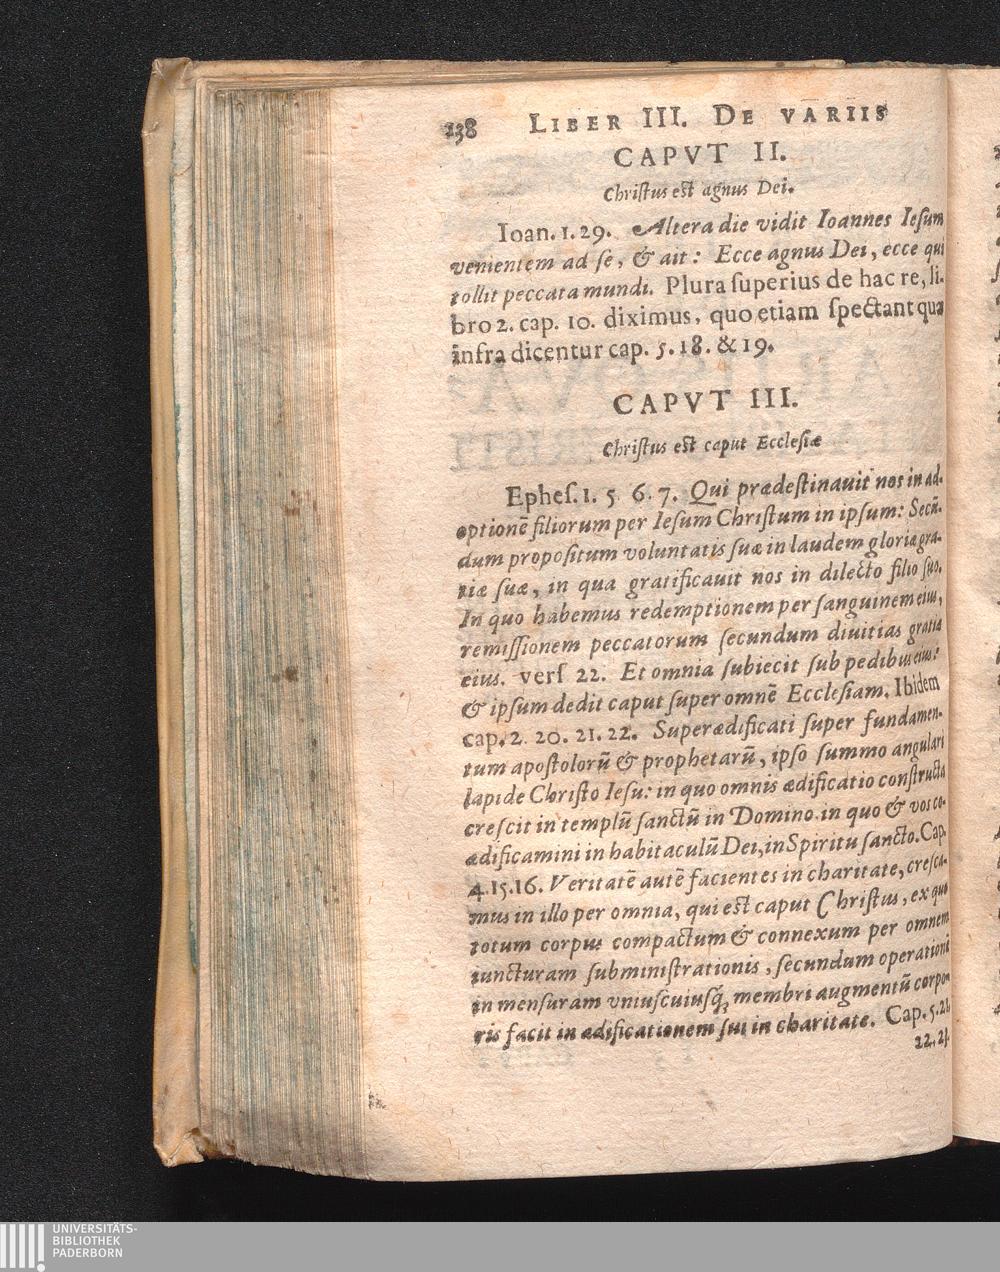 238 LIBER III. DE VARIIS
CAPVT II.
Chriſtus est agnus Dei.
Ioan. 1. 29. Altera die vidit Ioannes Ieſum
venientem ad ſe, & ait: Ecce agnus Dei, ecce qui
tollit peccata mundi. Plura ſuperius de hac re, li-
bro 2. cap. 10. diximus, quo etiam ſpectant quæ
infra dicentur cap. 5. 18. & 19.
CAPVT III.
Chriſtus est caput Eccleſiæ
Epheſ. 1. 5 6. 7. Qui prædeſtinauit nos in ad-
optionẽ filiorum per Ieſum Chriſtum in ipſum: Secũ-
dum propoſitum voluntatis ſuæ in laudem gloriæ gra-
tiæ ſuæ, in qua gratificauit nos in dilecto filio ſuo.
In quo habemus redemptionem per ſanguinem eius,
remiſſionem peccatorum ſecundum diuitias gratiæ
eius. verſ 22. Et omnia ſubiecit ſub pedibus eius:
& ipſum dedit caput ſuper omnẽ Eccleſiam. Ibidem
cap. 2. 20. 21. 22. Superædificati ſuper fundamen-
tum apoſtolorũ & prophetarũ, ipſo ſummo angulari
lapide Chriſto Ieſu: in quo omnis ædificatio conſtructa
creſcit in templũ ſanctũ in Domino. in quo & vos co-
ædificamini in habitaculũ Dei, in Spiritu ſancto. Cap.
4. 15. 16. Veritatẽ autẽ facientes in charitate, creſca-
mus in illo per omnia, qui est caput Chriſtus, ex quo
totum corpus compactum & connexum per omnem
iuncturam ſubminiſtrationis, ſecundum operationẽ
in menſuram vniuſcuiuſq́; membri augmentũ corpo-
ris facit in ædificationem ſui in charitate. Cap. 5. 21.
22. 23.
UNIVERSITÄTS-
BIBLIOTHEK
PADERBORN